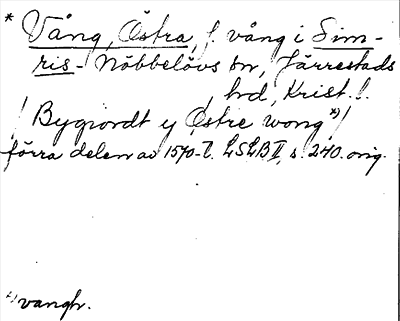 * Vång, Östra, f. vång i Sim-
ris- Nöbbelövs sn, Järrestads
hd, Krist. l.
/ Bygiordt ij Østre wong *) /
förra delen av 1570-t. LSLB II, s. 240. orig.
*) vangh.